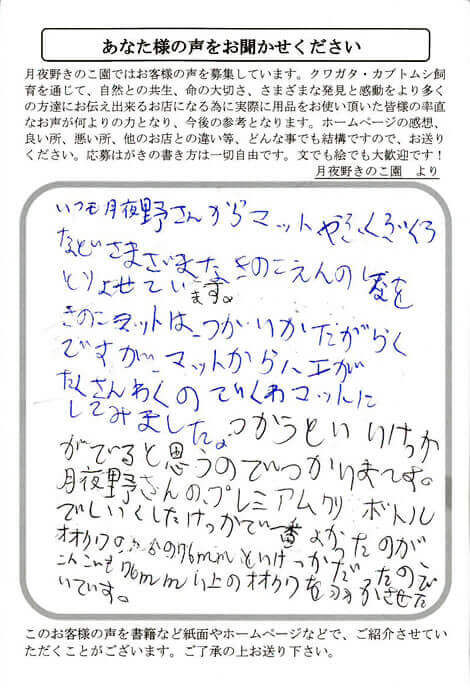 あなた様の声をお聞かせください
月夜野きのこ園ではお客様の声を募集しています。クワガタ・カブトムシ飼
育を通じて、自然との共生、命の大切さ、さまざまな発見と感動をより多く
の方達にお伝え出来るお店になる為に実際に用品をお使い頂いた皆様の率直
なお声が何よりの力となり、今後の参考となります。ホームページの感想、
良い所、悪い所、他のお店との違い等、どんな事でも結構ですので、お送り
ください。応募はがきの書き方は一切自由です。文でも絵でも大歓迎です！
月夜野きのこ園　より
いつも月夜野さんからマットや
などさまざまな きのこえんの
とりよせています。
きのこマットは、つかいかたがらく
ですが、マットからハエが
たくさんわくので くわマットに
してみました。つかうといいけっか
がでると思うのでつかいます。
月夜野さんの、プレミアム ボトル
でしいくしたけっかで一番よかったのが
オオクワの 76mmといけっかだったので
こんども76mm以上のオオクワを羽かさせた
いです。
このお客様の声を書籍など紙面やホームページなどで、ご紹介させてい
ただくことがございます。ご了承の上お送り下さい。